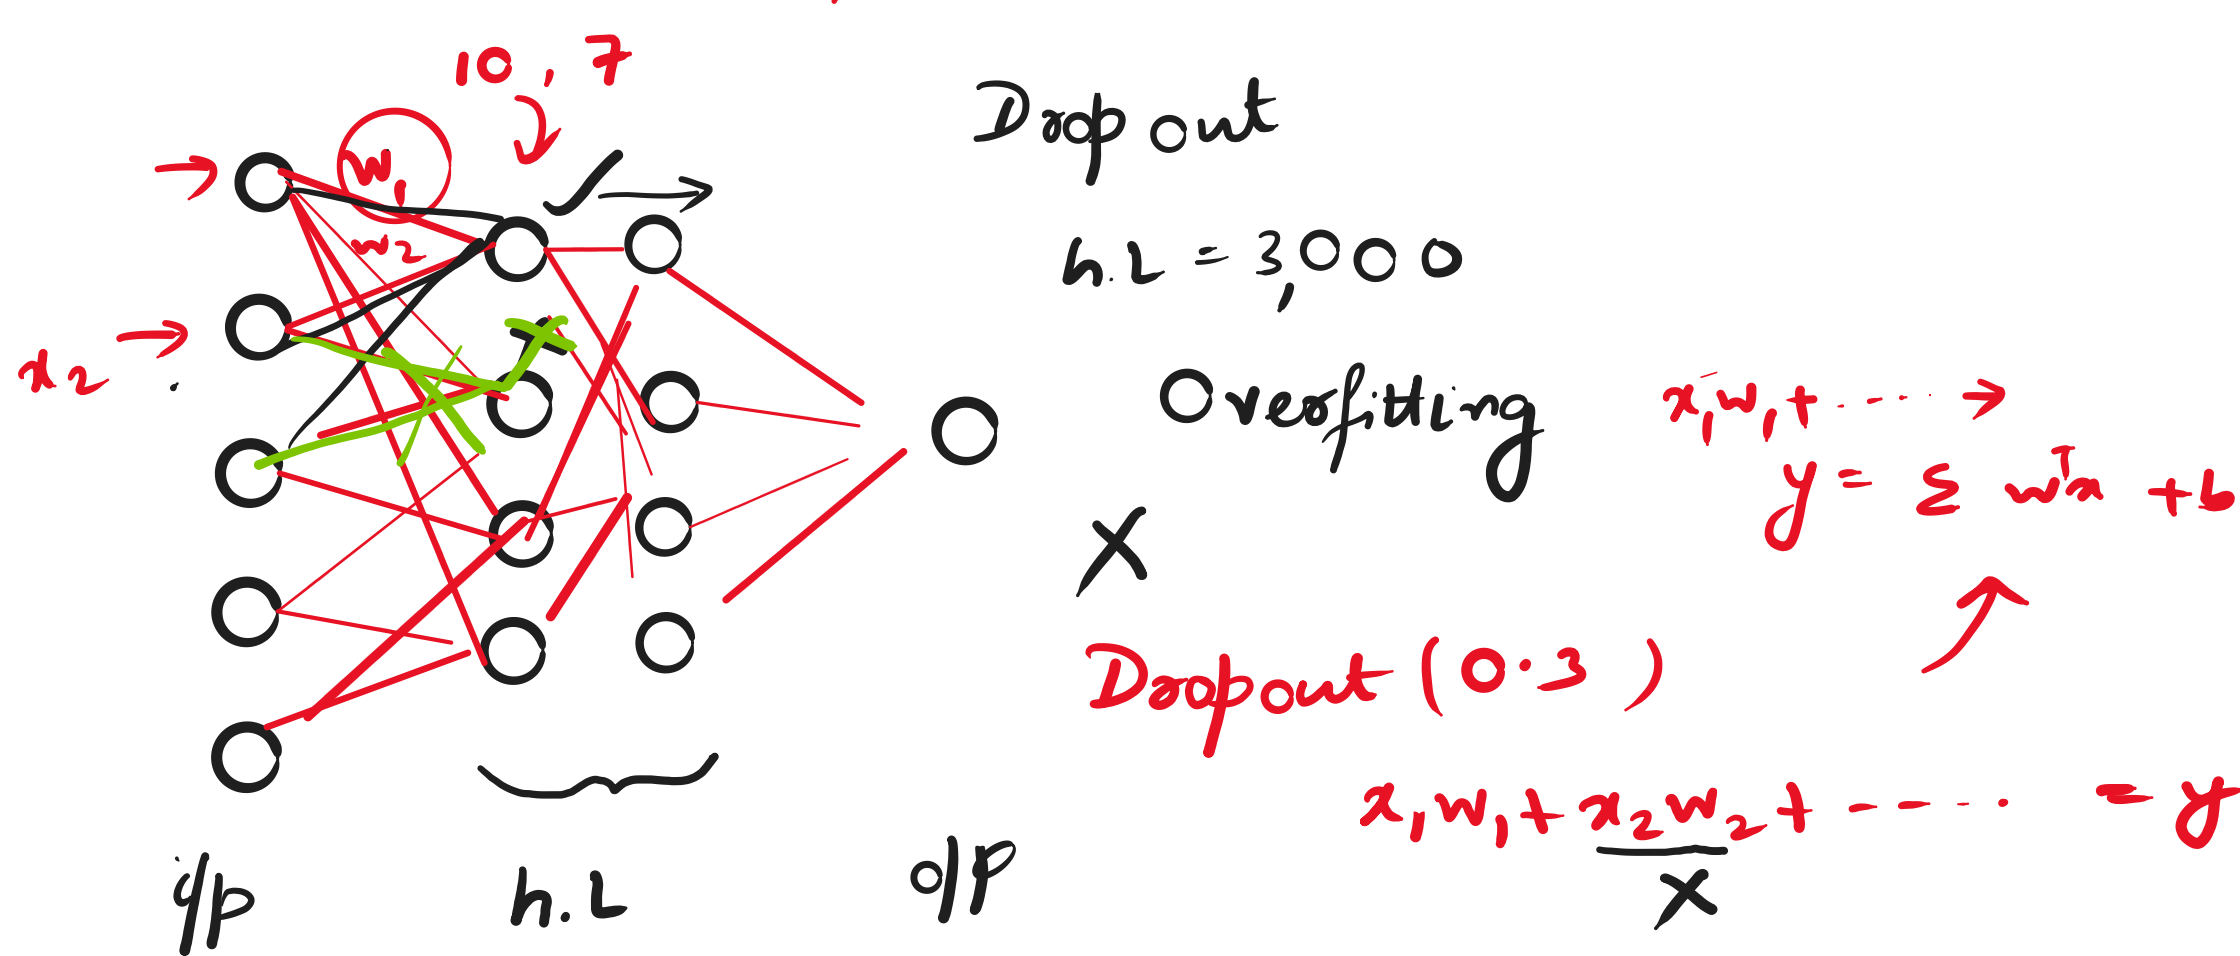 10, 7
Dropout
w1
w2
h.L = 3,000
x2
Overfitting
x1w1 + ---- →
y = Σ wᵀx + b
X
Dropout (0.3)
x1w1 + x2w2 + ---- = y
X
i/p
h.L
o/p